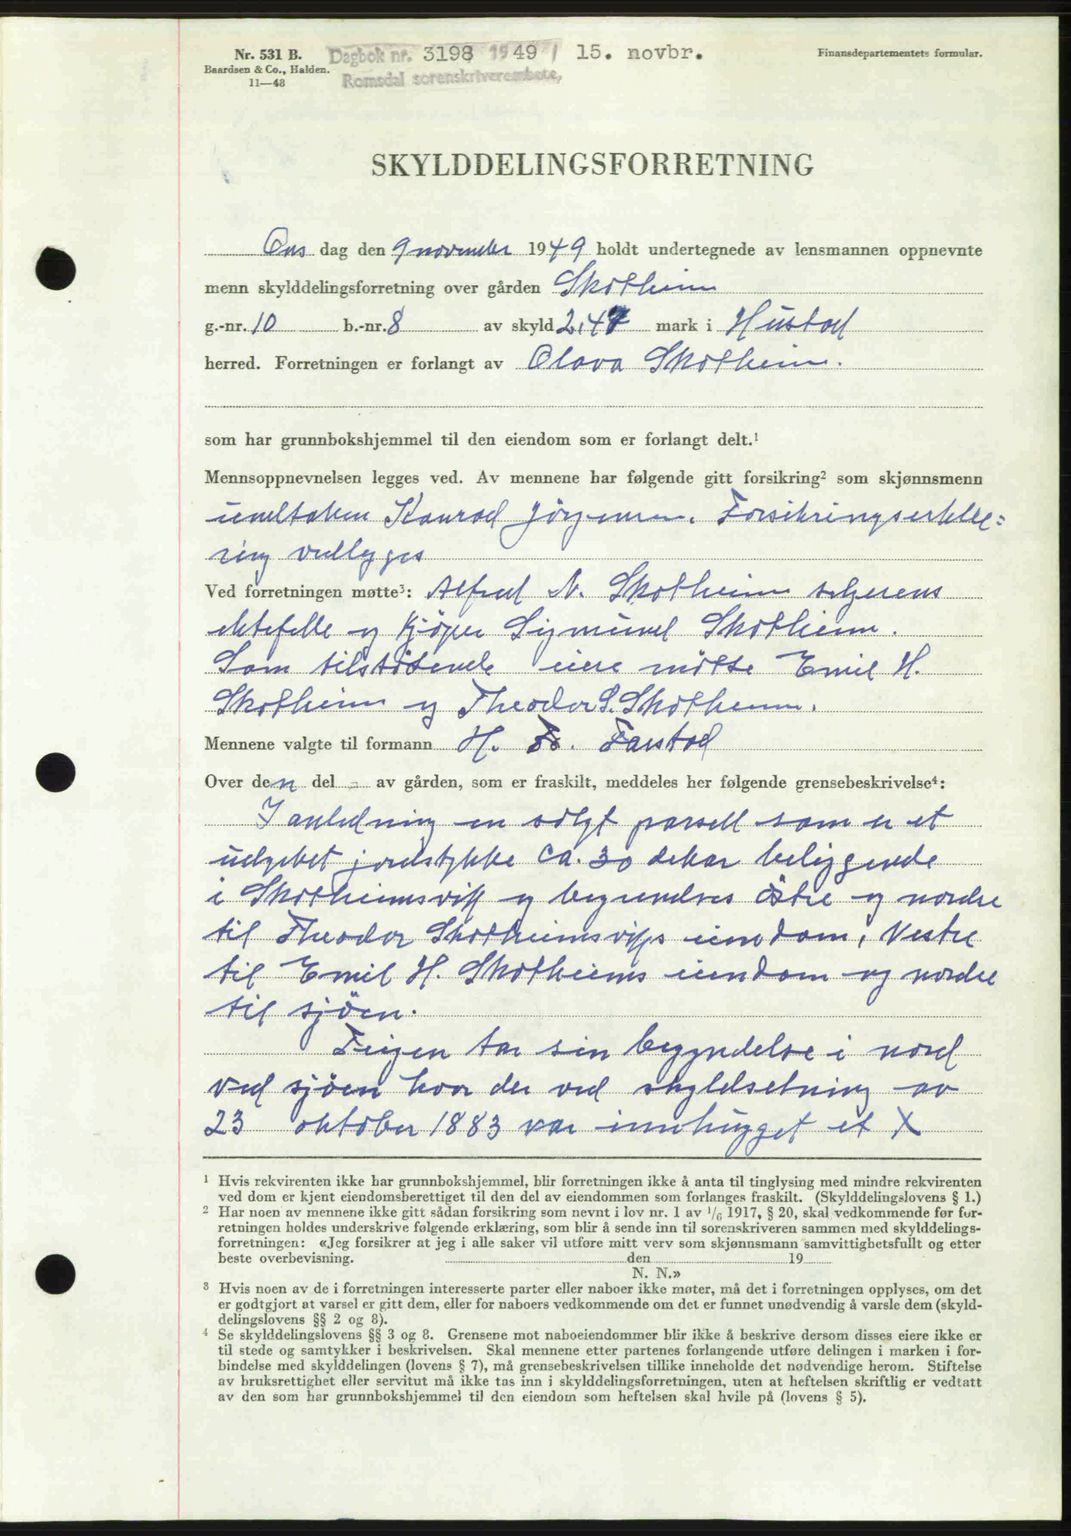 Nr. 531 B. Dagbok nr. 3198 1949 / 15. novbr. Finansdepartementets formular.
Baardsen & Co., Halden. Romsdal sorenskriverembete,
11—48
SKYLDDELINGSFORRETNING
Ons dag den 9 november 1949 holdt undertegnede av lensmannen oppnevnte
menn skylddelingsforretning over gården Skotheim
g.-nr. 10 b.-nr. 8 av skyld 2,47 mark i Hustad
herred. Forretningen er forlangt av Olava Skotheim.
som har grunnbokshjemmel til den eiendom som er forlangt delt.¹
Mennsoppnevnelsen legges ved. Av mennene har følgende gitt forsikring² som skjønnsmenn
unntaken Konrad Jörgensen. Forsikringserklæ=
ring vedlegges
Ved forretningen møtte³: Alfred N. Skotheim selgerens
ektefelle og kjöper Sigmund Skotheim.
Som tilstötende eiere mötte Emil H.
Skotheim og Theodor S. Skotheim.
Mennene valgte til formann H. Fr. Farstad
Over den del - av gården, som er fraskilt, meddeles her følgende grensebeskrivelse⁴:
I anledning en solgt parsell som er et
udyrket jordstykke ca. 30 dekar beliggende
i Skotheimsvik og begrendses östre og nordre
til Theodor Skotheimsviks eiendom, Vestre
til Emil H. Skotheims eiendom og nordre
til sjöen.
Feigen tar sin begyndelse i nord
ved sjöen hvor der ved skyldsetning av
23 oktober 1883 var innhugget et X
¹ Hvis rekvirenten ikke har grunnbokshjemmel, blir forretningen ikke å anta til tinglysing med mindre rekvirenten
ved dom er kjent eiendomsberettiget til den del av eiendommen som forlanges fraskilt. (Skylddelingslovens § 1.)
² Har noen av mennene ikke gitt sådan forsikring som nevnt i lov nr. 1 av 1/6 1917, § 20, skal vedkommende før for-
retningen holdes underskrive følgende erklæring, som blir å sende inn til sorenskriveren sammen med skylddelings-
forretningen: «Jeg forsikrer at jeg i alle saker vil utføre mitt verv som skjønnsmann samvittighetsfullt og etter
beste overbevisning. den 19
N. N.»
³ Hvis noen av de i forretningen interesserte parter eller naboer ikke møter, må det i forretningen opplyses, om det
er godtgjort at varsel er gitt dem, eller for naboers vedkommende om det er funnet unødvendig å varsle dem (skyld-
delingslovens §§ 2 og 8).
⁴ Se skylddelingslovens §§ 3 og 8. Grensene mot naboeiendommer blir ikke å beskrive dersom disses eiere ikke er
til stede og samtykker i beskrivelsen. Skal mennene etter partenes forlangende utføre delingen i marken i for-
bindelse med skylddelingen (lovens § 7), må grensebeskrivelsen tillike inneholde det nødvendige herom. Stiftelse
av bruksrettighet eller servitut må ikke tas inn i skylddelingsforretningen, uten at heftelsen skriftlig er vedtatt
av den som har grunnbokshjemmel til den eiendom som heftelsen skal hvile på (lovens § 5).